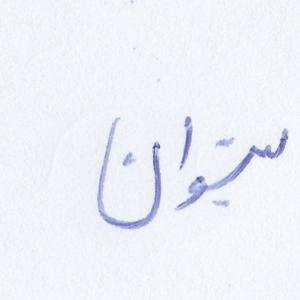 سیتوان